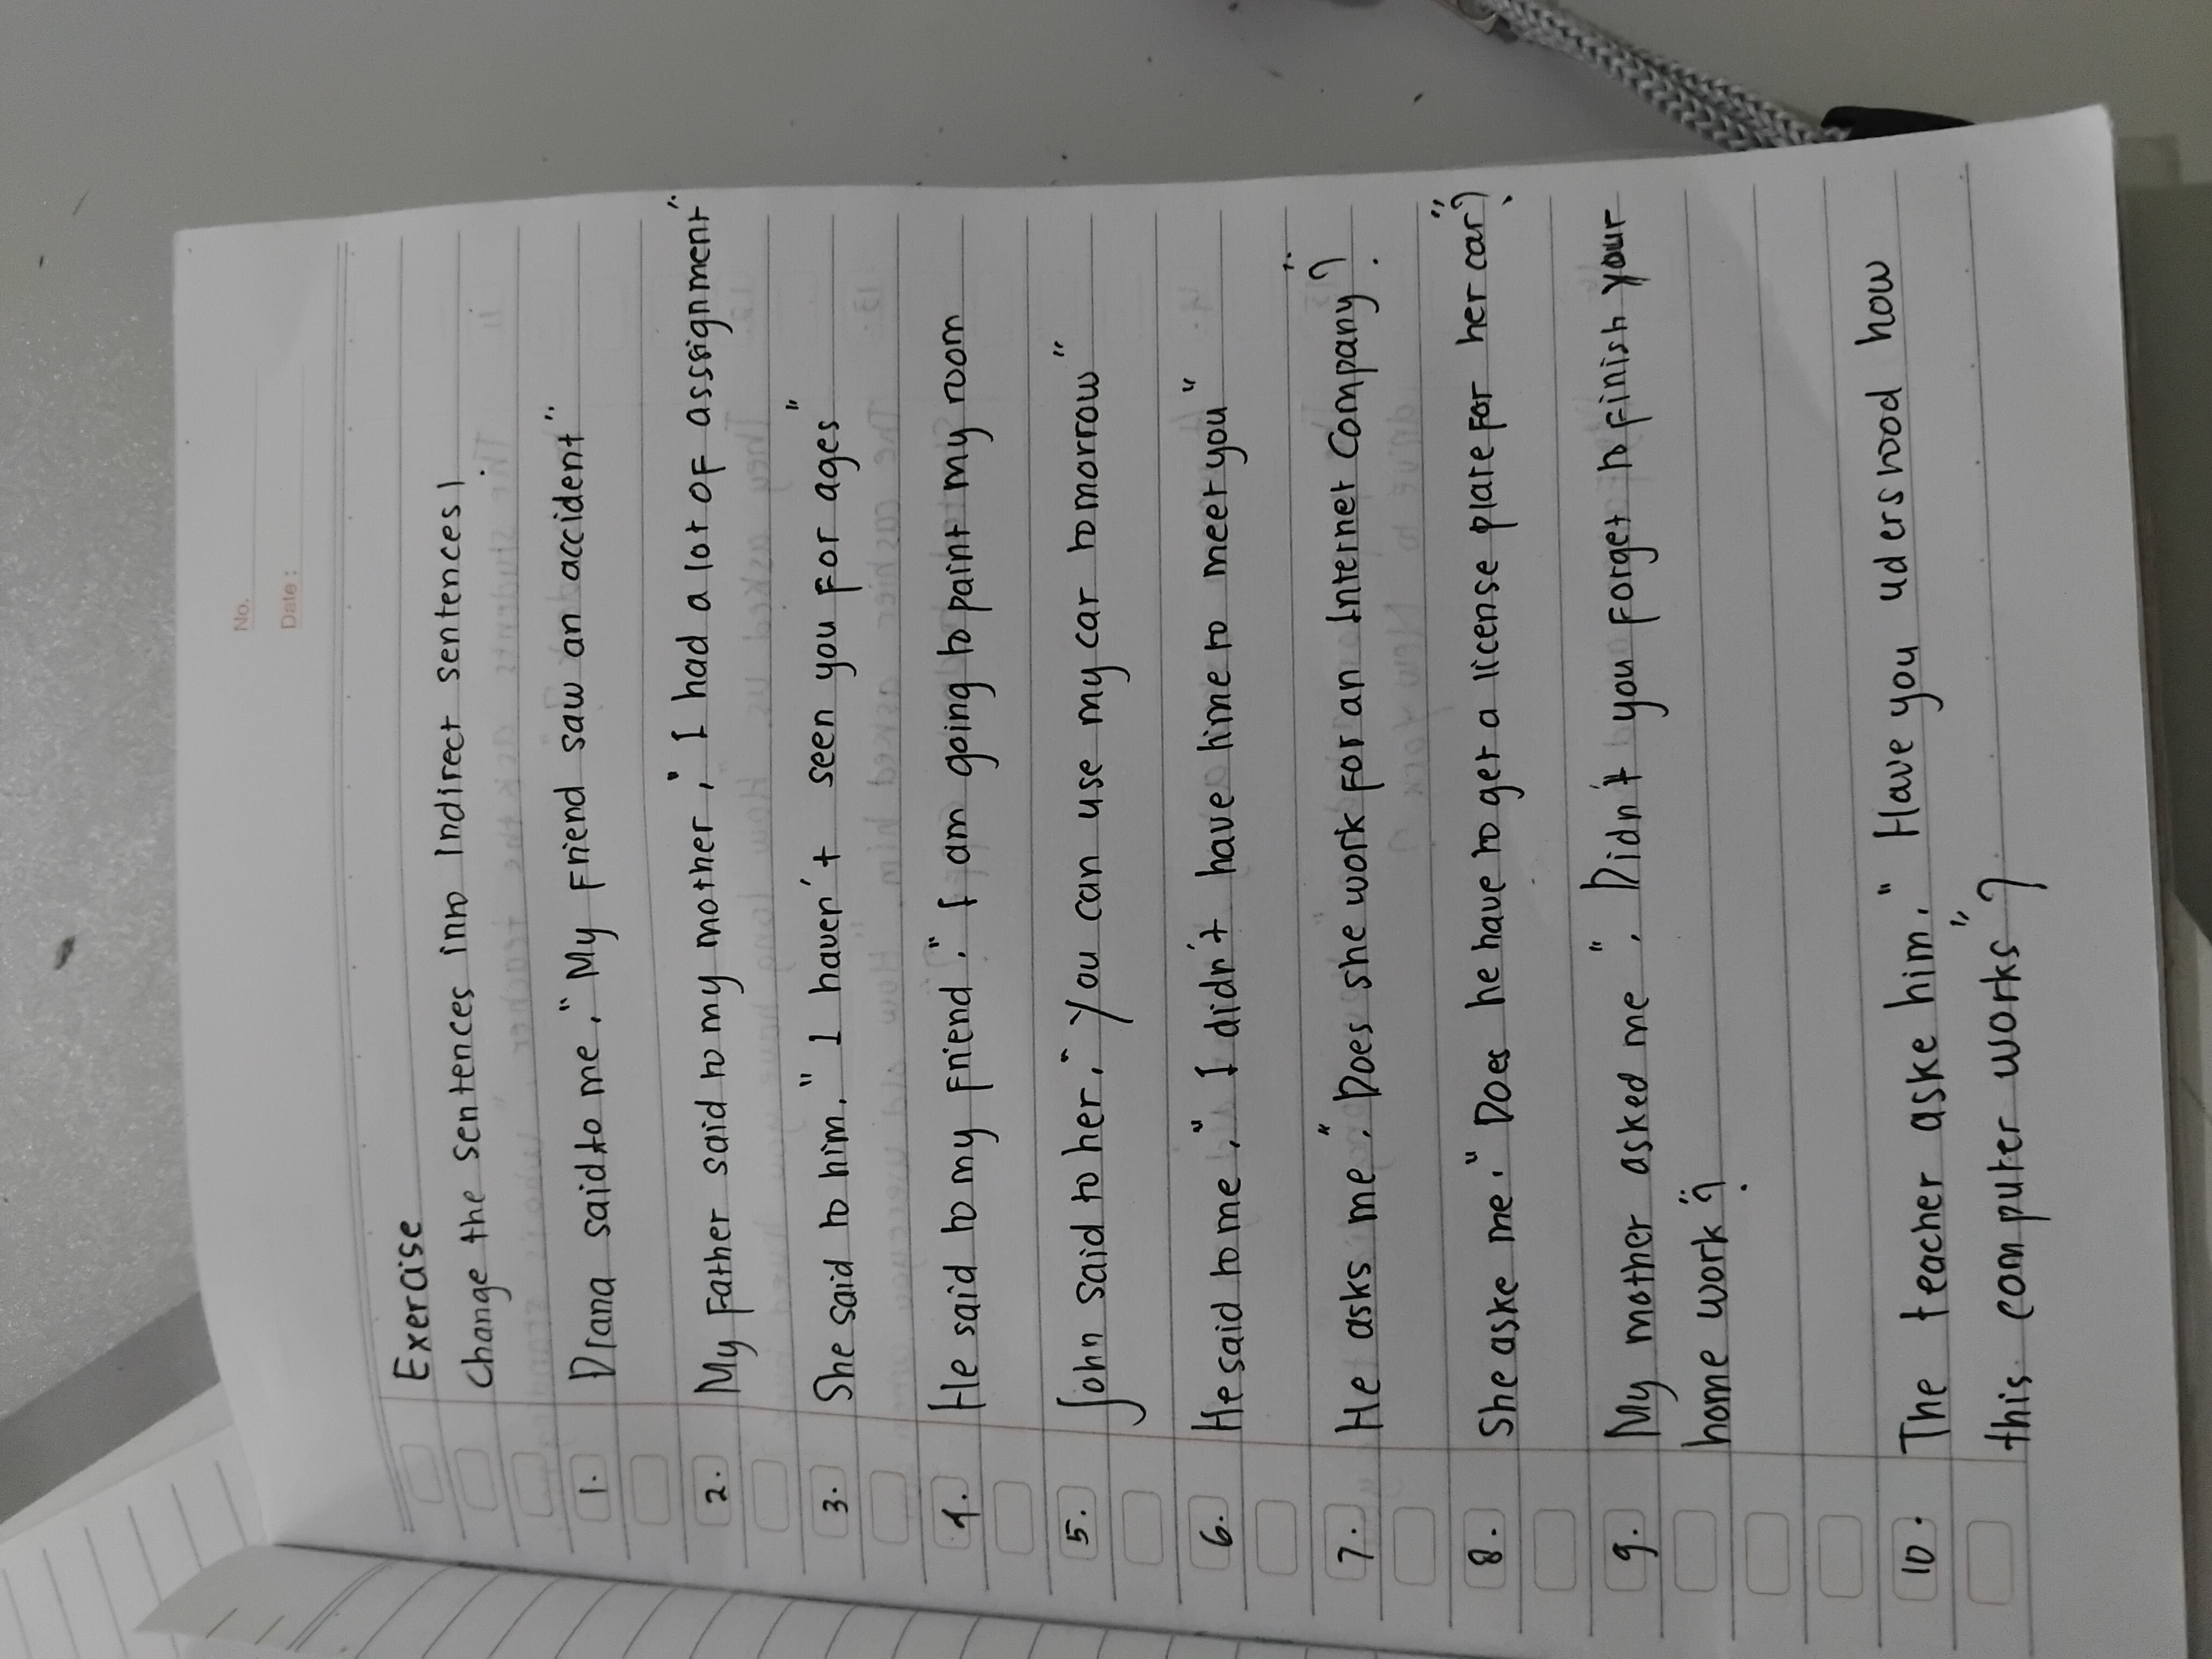 No.
Date :
Exercise
Change the sentences into Indirect sentences!
1. Diana said to me, "My Friend saw an accident"
2. My Father said to my mother, "I had a lot of asssignment"
3. She said to him, "I haven't seen you for ages"
4. He said to my Friend, "I am going to paint my room
5. John said to her, "You can use my car tomorrow"
6. He said to me, "I didn't have time to meet you"
7. He asks me, "Does she work for an Internet Company?"
8. She aske me, "Does he have to get a license plate for her car"?
9. My mother asked me ", Didn't you forget to finish your
home work"?
10. The teacher aske him, "Have you uderstood how
this computer works"?